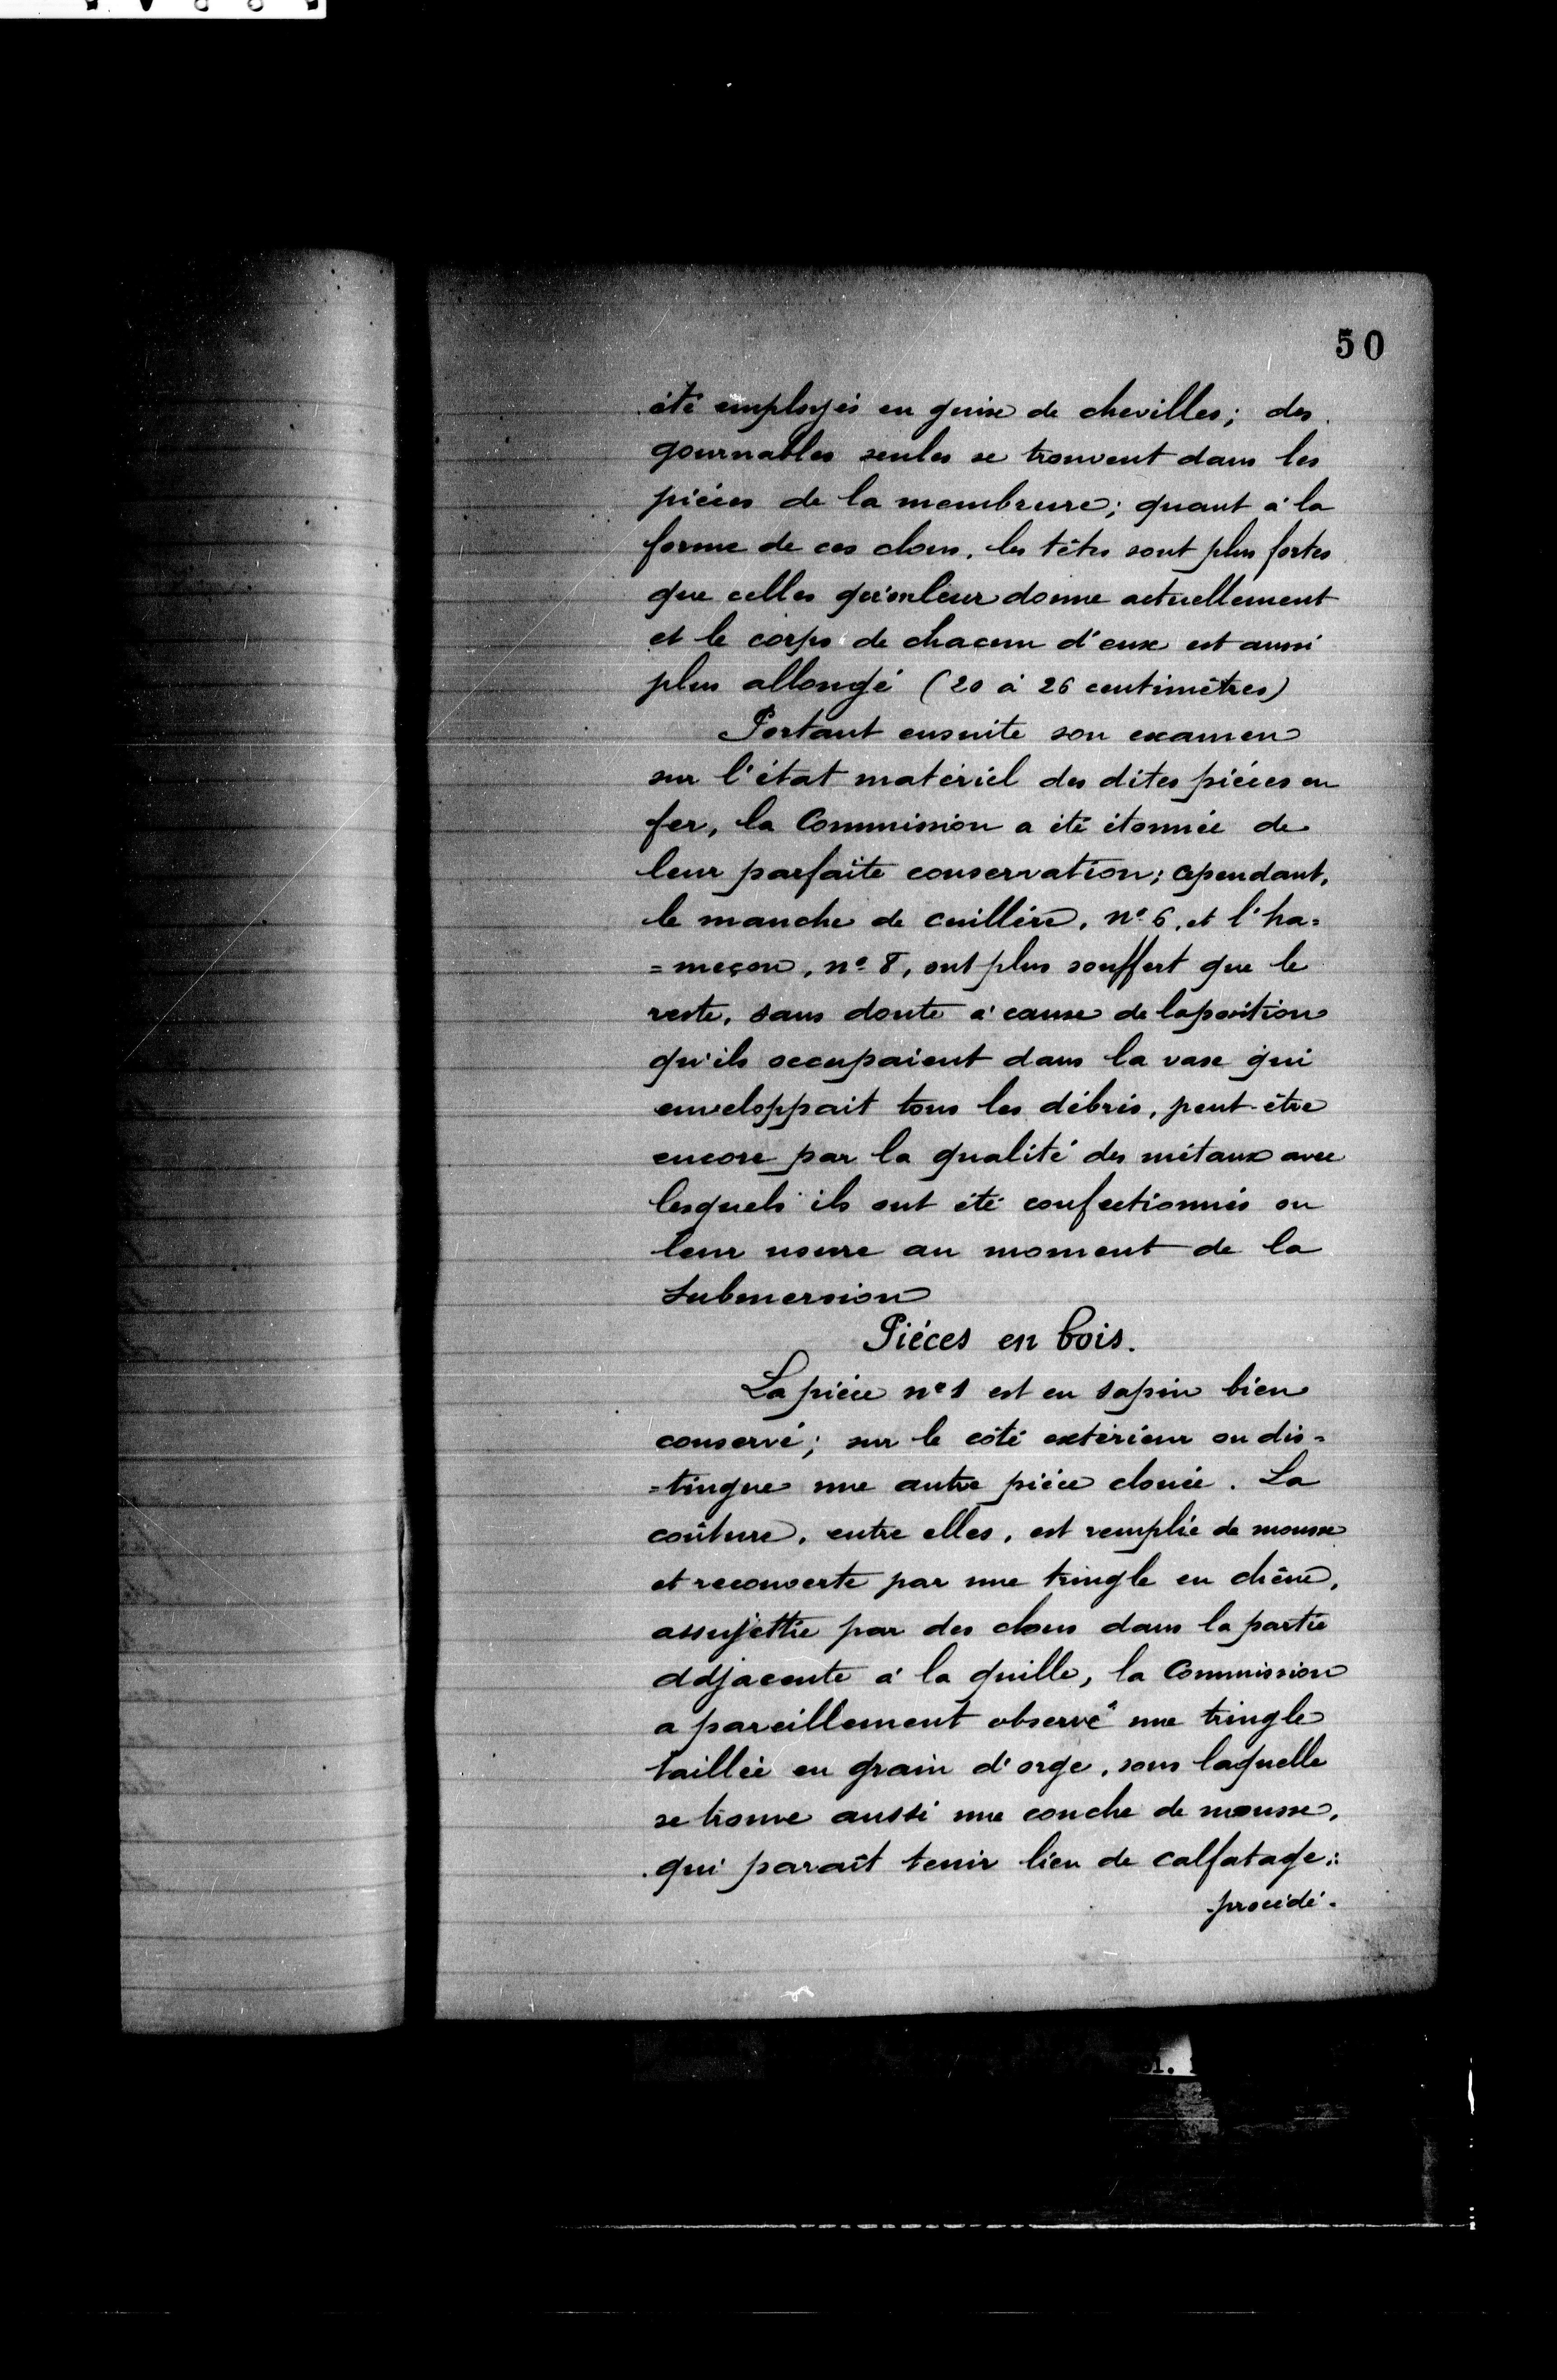 50
été employés en guise de chevilles; des
gournables seules se trouvent dans les
pièces de la membrure; quant à la
forme de ces clous, les têtes sont plus fortes
que celles qu'on leur donne actuellement
et le corps de chacun d'eux est aussi
plus allongé (20 à 26 centimètres)
Portant ensuite son examen
sur l'état matériel des dites pièces en
fer, la Commission a été étonnée de
leur parfaite conservation; cependant,
le manche de cuillère, nº 6, et l'ha=
=meçon, nº 8, ont plus souffert que le
reste, sans doute à cause de la position
qu'ils occupaient dans la vase qui
enveloppait tous les débris, peut-être
encore par la qualité des métaux avec
lesquels ils ont été confectionnés ou
leur usure au moment de la
submersion
Pièces en bois.
La pièce nº 1 est en sapin bien
conservé; sur le côté extérieur on dis=
=tingue une autre pièce clouée. La
coûture, entre elles, est remplie de mousse
et recouverte par une tringle en chêne,
assujettie par des clous dans la partie
adjacente à la quille, la Commission
a pareillement observé une tringle
taillée en grain d'orge, sous laquelle
se trouve aussi une couche de mousse,
qui paraît tenir lieu de calfatage;
procédé